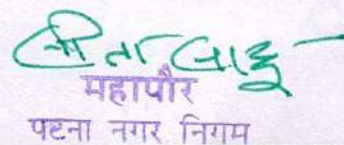 सीता साहू
महापौर
पटना नगर निगम